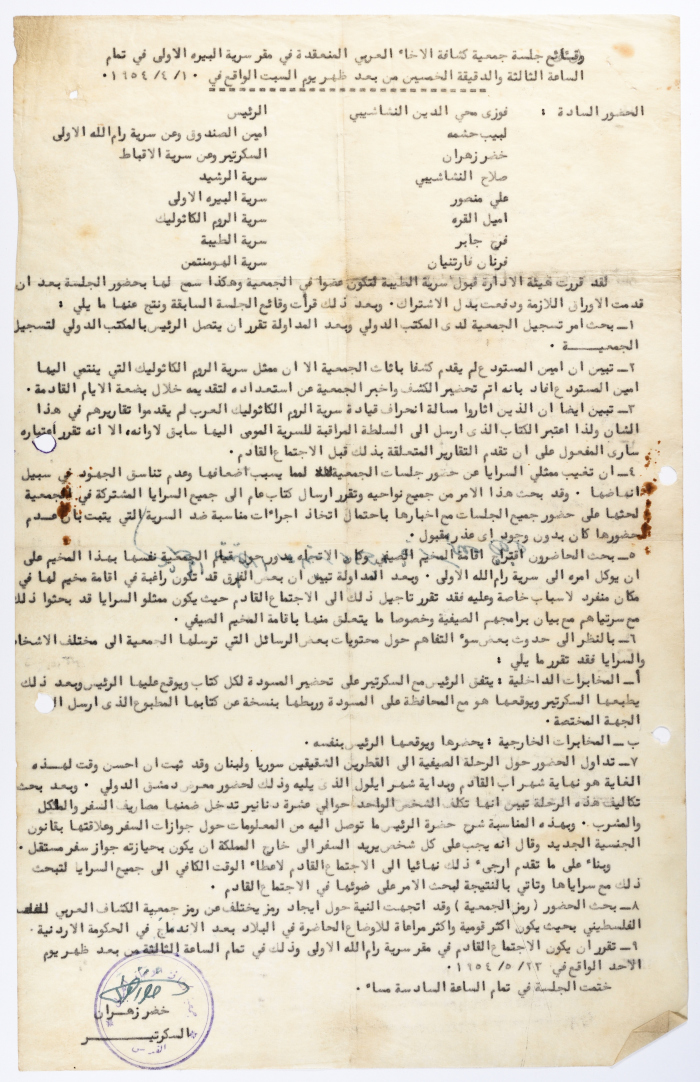 وقائع جلسة جمعية كشافة الاخاء العربي المنعقدة في مقر سرية البيره الاولى في تمام
الساعة الثالثة والدقيقة الخمسين من بعد ظهر يوم السبت الواقع في ١٠/٤/١٩٥٤٠
الحضور السادة : فوزى محي الدين النشاشيبي الرئيس
لبيب حشمه امين الصندوق وعن سرية رام الله الاولى
خضر زهران السكرتير وعن سرية الاقباط
صلاح النشاشيبي سرية الرشيد
علي منصور سرية البيره الاولى
اميل القره سرية الروم الكاثوليك
فرج جابر سرية الطيبة
فرنان فارتنيان سرية الهومنتمن
لقد قررت هيئة الادارة قبول سرية الطيبة لتكون عضوا في الجمعية وهكذا سمح لها بحضور الجلسة بعد ان
قدمت الاوراق اللازمة ودفعت بدل الاشتراك. وبعد ذلك قرأت وقائع الجلسة السابقة ونتج عنها ما يلي :
١ـ بحث امر تسجيل الجمعية لدى المكتب الدولي وبعد المداولة تقرر ان يتصل الرئيس بالمكتب الدولي لتسجيل
الجمعيـــة .
٢ـ تبين ان امين المستودع لم يقدم كشفا باثاث الجمعية الا ان ممثل سرية الروم الكاثوليك التي ينتمي اليها
امين المستودع افاد بانه اتم تحضير الكشف واخبر الجمعية عن استعداده لتقديمه خلال بضعة الايام القادمة .
٣ـ تبين ايضا ان الذين اثاروا مسالة انحراف قيادة سرية الروم الكاثوليك العرب لم يقدموا تقاريرهم في هذا
الشان ولذا اعتبر الكتاب الذى ارسل الى السلطة المراقبة للسرية المومى اليها سابق لاوانه، الا انه تقرر اعتباره
سارى المفعول على ان تقدم التقارير المتعلقة بذلك قبل الاجتماع القادم .
٤ـ ان تغيب ممثلي السرايا عن حضور جلسات الجمعية لمما يسبب اضعافها وعدم تناسق الجهود في سبيل
انهاضها . وقد بحث هذا الامر من جميع نواحيه وتقرر ارسال كتاب عام الى جميع السرايا المشتركة في الجمعية
لحثها على حضور جميع الجلسات مع اخبارها باحتمال اتخاذ اجراءات مناسبة ضد السرية التي يثبت بان عدم
حضورها كان بدون وجود اى عذر مقبول .
٥ـ بحث الحاضرون اقتراح اقامة المخيم الصيفي وكان الاتجاه يدور حول قيام الجمعية نفسها بهذا المخيم على
ان يوكل امره الى سرية رام الله الاولى . وبعد المداولة تبين ان بعض الفرق قد تكون راغبة في اقامة مخيم لها في
مكان منفرد لاسباب خاصة وعليه فقد تقرر تاجيل ذلك الى الاجتماع القادم حيث يكون ممثلو السرايا قد بحثوا ذلك
مع سرتياهم مع بيان برامجهم الصيفية وخصوصا ما يتعلق منها باقامة المخيم الصيفي .
٦ـ بالنظر الى حدوث بعض سوء التفاهم حول محتويات بعض الرسائل التي ترسلها الجمعية الى مختلف الاشخا
والسرايا فقد تقرر ما يلي :
أـ المخابرات الداخلية : يتفق الرئيس مع السكرتير على تحضير المسودة لكل كتاب ويوقع عليها الرئيس وبعد ذلك
يطبعها السكرتير ويوقعها هو مع المحافظة على المسودة وربطها بنسخة عن كتابها المطبوع الذى ارسل ال
الجهة المختصة .
ب ـ المخابرات الخارجية : يحضرها ويوقعها الرئيس بنفسه .
٧ـ تداول الحضور حول الرحلة الصيفية الى القطرين الشقيقين سوريا ولبنان وقد ثبت ان احسن وقت لهـذه
الغاية هو نهاية شهر اب القادم وبداية شهر ايلول الذى يليه وذلك لحضور معرض دمشق الدولي . وبعد بحث
تكاليف هذه الرحلة تبين انها تكلف الشخص الواحد حوالي عشرة دنانير تدخل ضمنها مصاريف السفر والماكل
والمشرب . وبهذه المناسبة شرح حضرة الرئيس ما توصل اليه من المعلومات حول جوازات السفر وعلاقتها بقانون
الجنسية الجديد وقال انه يجب على كل شخص يريد السفر الى خارج المملكة ان يكون بحيازته جواز سفر مستقل .
وبناء على ما تقدم ارجىء ذلك نهائيا الى الاجتماع القادم لاعطاء الوقت الكافي الى جميع السرايا لتبحث
ذلك مع سراياها وتاتي بالنتيجة لبحث الامر على ضوئها في الاجتماع القادم .
٨ـ بحث الحضور ( رمز الجمعية ) وقد اتجهت النية حول ايجاد رمز يختلف عن رمز جمعية الكشاف العربي
الفلسطيني بحيث يكون اكثر قومية واكثر مراعاة للاوضاع الحاضرة في البلاد بعد الاندماج في الحكومة الاردنية .
٩ـ تقرر ان يكون الاجتماع القادم في مقر سرية رام الله الاولى وذلك في تمام الساعة الثالثة من بعد ظهر يوم
الاحد الواقع في ٢٣/٥/١٩٥٤٠
ختمت الجلسة في تمام الساعة السادسة مساء .
خضر زهـران
السكرتيــر
القدس